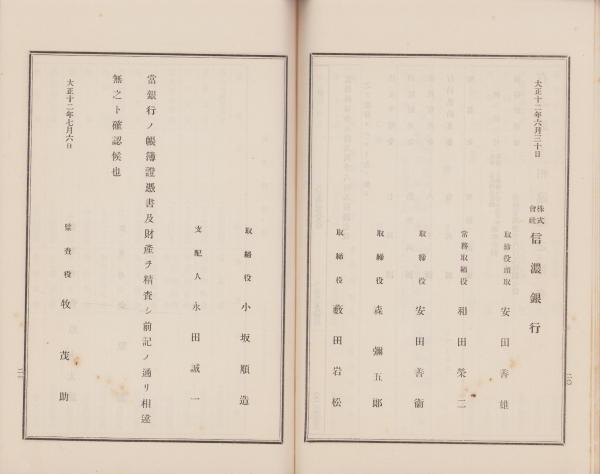 大正十二年六月三十日
株式會社 信濃銀行
取締役頭取 安田善雄
常務取締役 和田榮二
取締役 安田善衞
取締役 森彌五郎
取締役 藪田岩松
二〇
取締役 小坂順造
支配人 永田誠一
當銀行ノ帳簿證憑書及財產ヲ精査シ前記ノ通リ相違
無之ト確認候也
大正十二年七月六日
監査役 牧茂助
二一